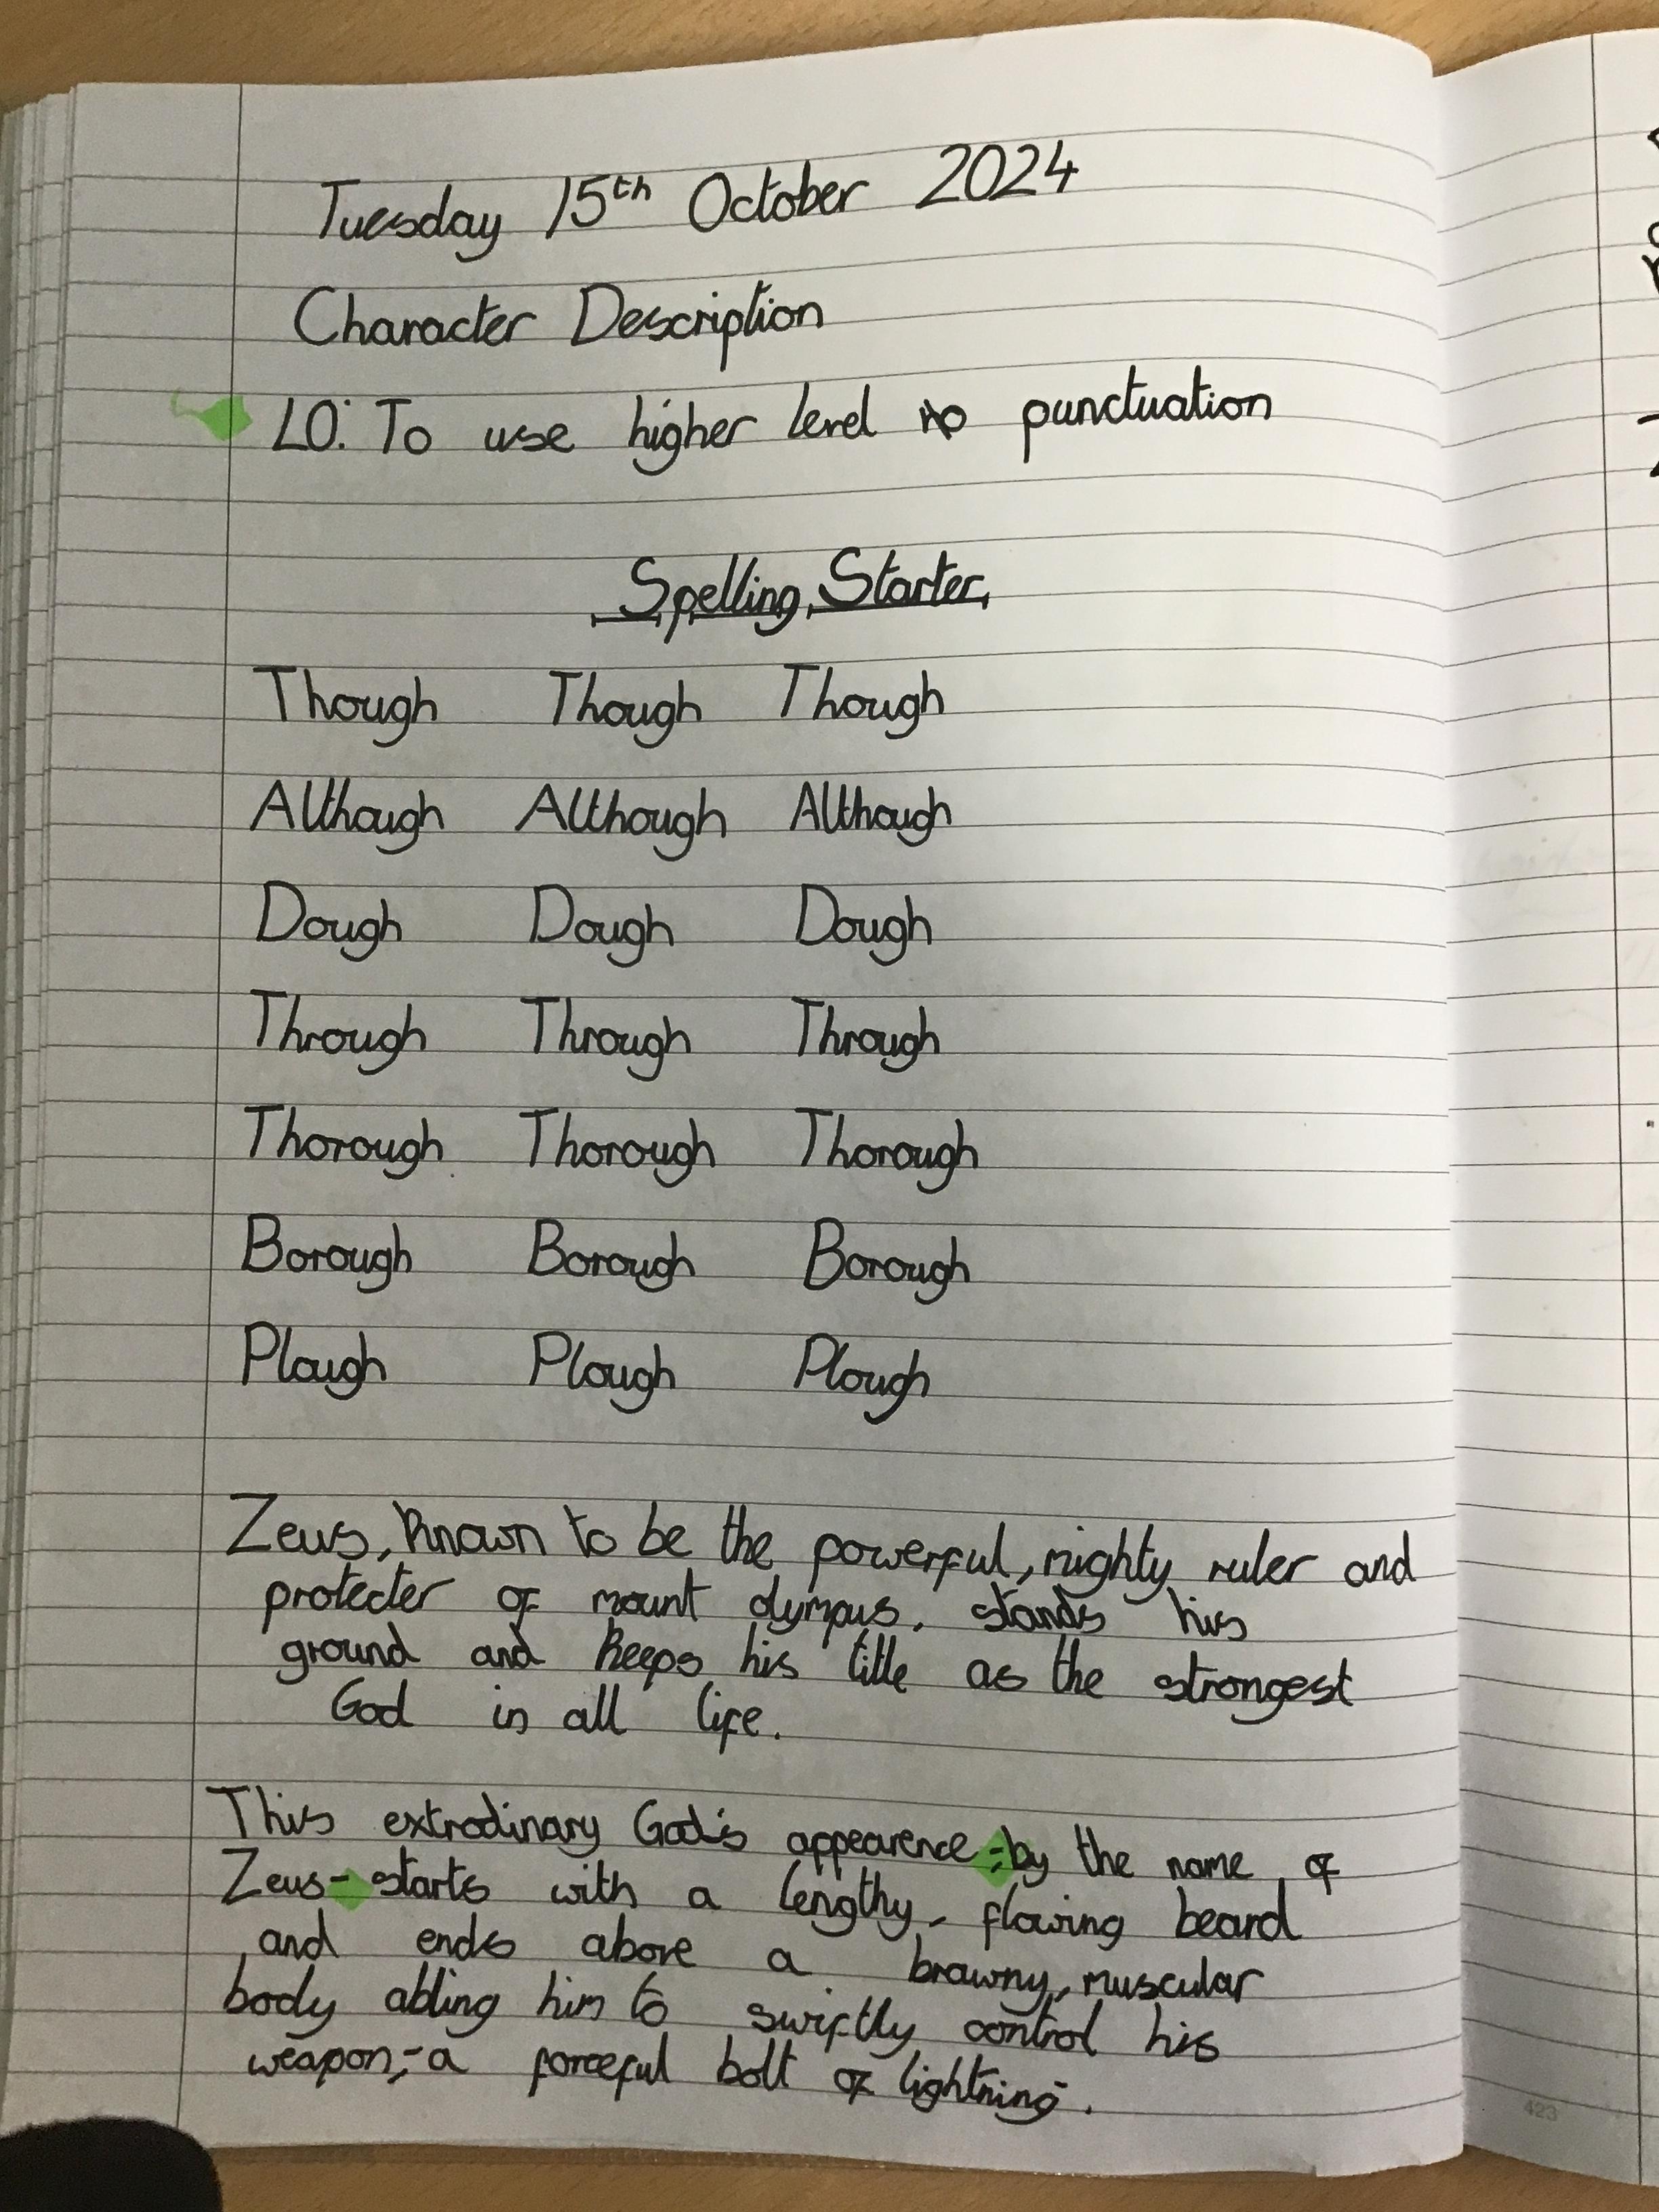 Tuesday 15th October 2024
Character Description
LO: To use higher level punctuation
Spelling Starter
Though Though Though
Although Although Although
Dough Dough Dough
Through Through Through
Thorough Thorough Thorough
Borough Borough Borough
Plough Plough Plough
Zeus, known to be the powerful, mighty ruler and
protecter of mount olympus, stands his
ground and keeps his title as the strongest
God in all life.
This extrodinary God's appearence - by the name of
Zeus - starts with a lengthy, flowing beard
and ends above a brawny, muscular
body abling him to swiftly control his
weapon,-a forceful bolt of lightning-.
423